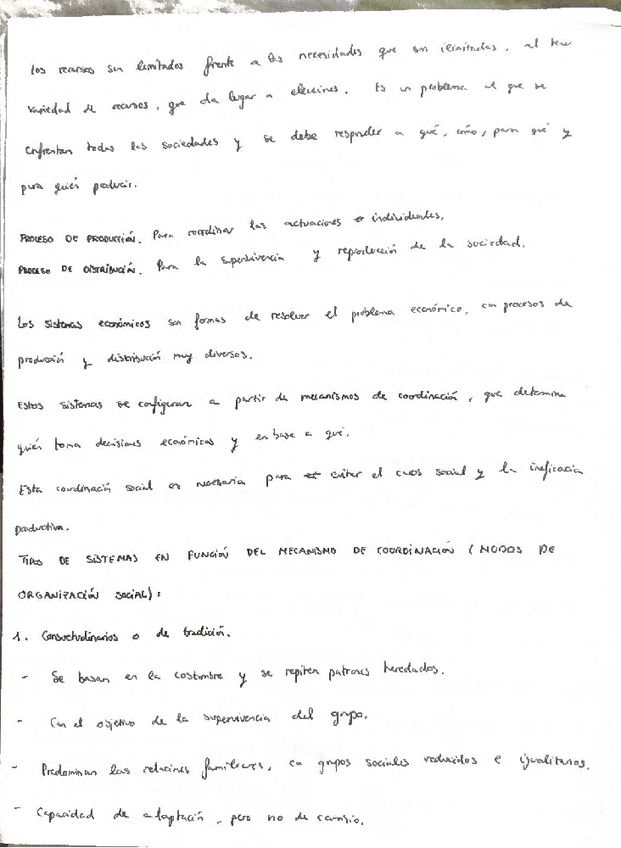 Los recursos son limitados frente a las necesidades que son ilimitadas, al tener
variedad de recursos, que da lugar a elecciones. Es un problema al que se
enfrentan todas las sociedades y se debe responder a qué, cómo, para qué y
para quién producir.
PROCESO DE PRODUCCIÓN. Para coordinar las actuaciones individuales.
PROCESO DE DISTRIBUCIÓN. Para la supervivencia y reproducción de la sociedad.
Los sistemas económicos son formas de resolver el problema económico, con procesos de
producción y distribución muy diversos.
Estos sistemas se configuran a partir de mecanismos de coordinación, que determina
quién toma decisiones económicas y en base a qué.
Esta coordinación social es necesaria para evitar el caos social y la ineficacia
productiva.
TIPOS DE SISTEMAS EN FUNCIÓN DEL MECANISMO DE COORDINACIÓN (MODOS DE
ORGANIZACIÓN SOCIAL):
1. Consuetudinarios o de tradición.
- Se basan en la costumbre y se repiten patrones heredados.
- Con el objetivo de la supervivencia del grupo.
- Predominan las relaciones familiares, en grupos sociales reducidos e igualitarios.
- Capacidad de adaptación, pero no de cambio.